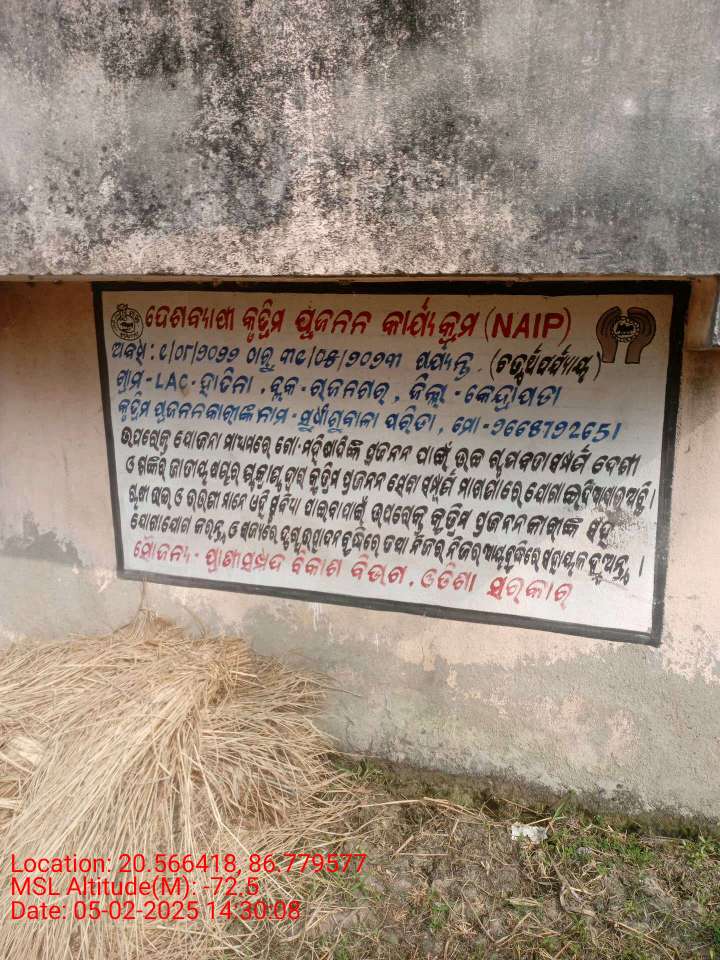 ଦେଶବ୍ୟାପୀ କୃତ୍ରିମ ପ୍ରଜନନ କାର୍ଯ୍ୟକ୍ରମ (NAIP)
ଅବଧି : ୧/୦୮/୨୦୨୨ ଠାରୁ ୩୧/୦୫/୨୦୨୩ ପର୍ଯ୍ୟନ୍ତ (ଚତୁର୍ଥପର୍ଯ୍ୟାୟ)
ଗ୍ରାମ - LAC - ହାତିନା, ବ୍ଲକ - ରାଜନଗର, ଜିଲ୍ଲା - କେନ୍ଦ୍ରାପଡା
କୃତ୍ରିମ ପ୍ରଜନନକାରୀଙ୍କ ନାମ - ସୁଧାଂଶୁବାଳା ପରିଡା, ମୋ -
ଉପରୋକ୍ତ ଯୋଜନା ମାଧ୍ୟମରେ ଗୋ-ମହିଷାଦିଙ୍କ ପ୍ରଜନନ ପାଇଁ ଉଚ୍ଚ ଗୁଣବତ୍ତାସମ୍ପର୍ଣ ଦେଶୀ
ଓ ଶଙ୍କର ଜାତୀୟ ଷଣ୍ଢର ଦ୍ୱାରା କୃତ୍ରିମ ପ୍ରଜନନ ସେବା ସମ୍ପୂର୍ଣ ମାଗଣାରେ ଯୋଗାଇ ଦିଆଯାଉଅଛି।
ଚାଷୀ ଭାଇ ଓ ଭଉଣୀ ମାନେ ଏହି ସୁବିଧା ପାଇବାପାଇଁ ଉପରୋକ୍ତ କୃତ୍ରିମ ପ୍ରଜନନକାରୀଙ୍କ ସହ
ଯୋଗାଯୋଗ କରନ୍ତୁ, ଓ ରାଜ୍ୟରେ ଦୁଗ୍ଧ ଉତ୍ପାଦନ ବୃଦ୍ଧିରେ ତଥା ନିଜର ଆୟ ବୃଦ୍ଧିରେ ସହାୟକ ହୁଅନ୍ତୁ।
ସୌଜନ୍ୟ - ପ୍ରାଣୀସମ୍ପଦ ବିକାଶ ବିଭାଗ, ଓଡିଶା ସରକାର
Location: 20.566418, 86.779577
MSL Altitude(M): -72.5
Date: 05-02-2025 14:30:08